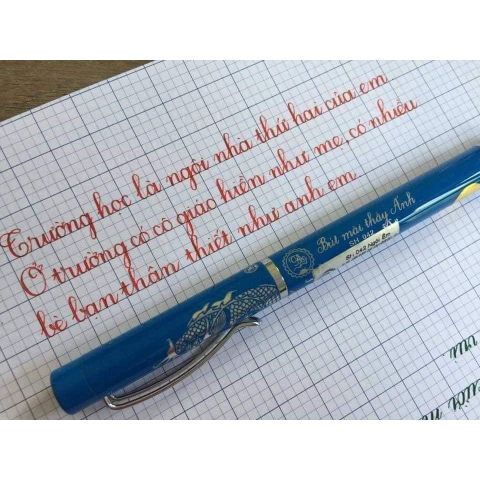 Trường học là ngôi nhà thứ hai của em
Ở trường có cô giáo hiền như mẹ, có nhiều
bè bạn thân thiết như anh em
Bút mài thầy Ánh
SH 042
SH 042 Ngòi Êm
vui